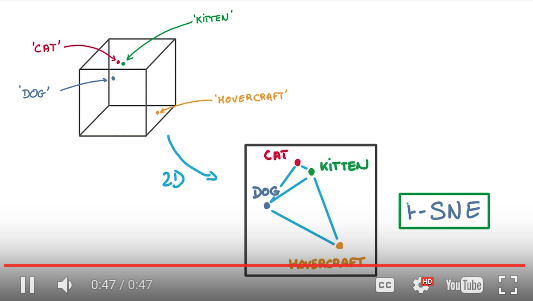 'KITTEN'
'CAT'
'DOG'
'HOVERCRAFT'
2D
CAT
KITTEN
DOG
HOVERCRAFT
t-SNE
0:47 / 0:47
CC
HD
YouTube